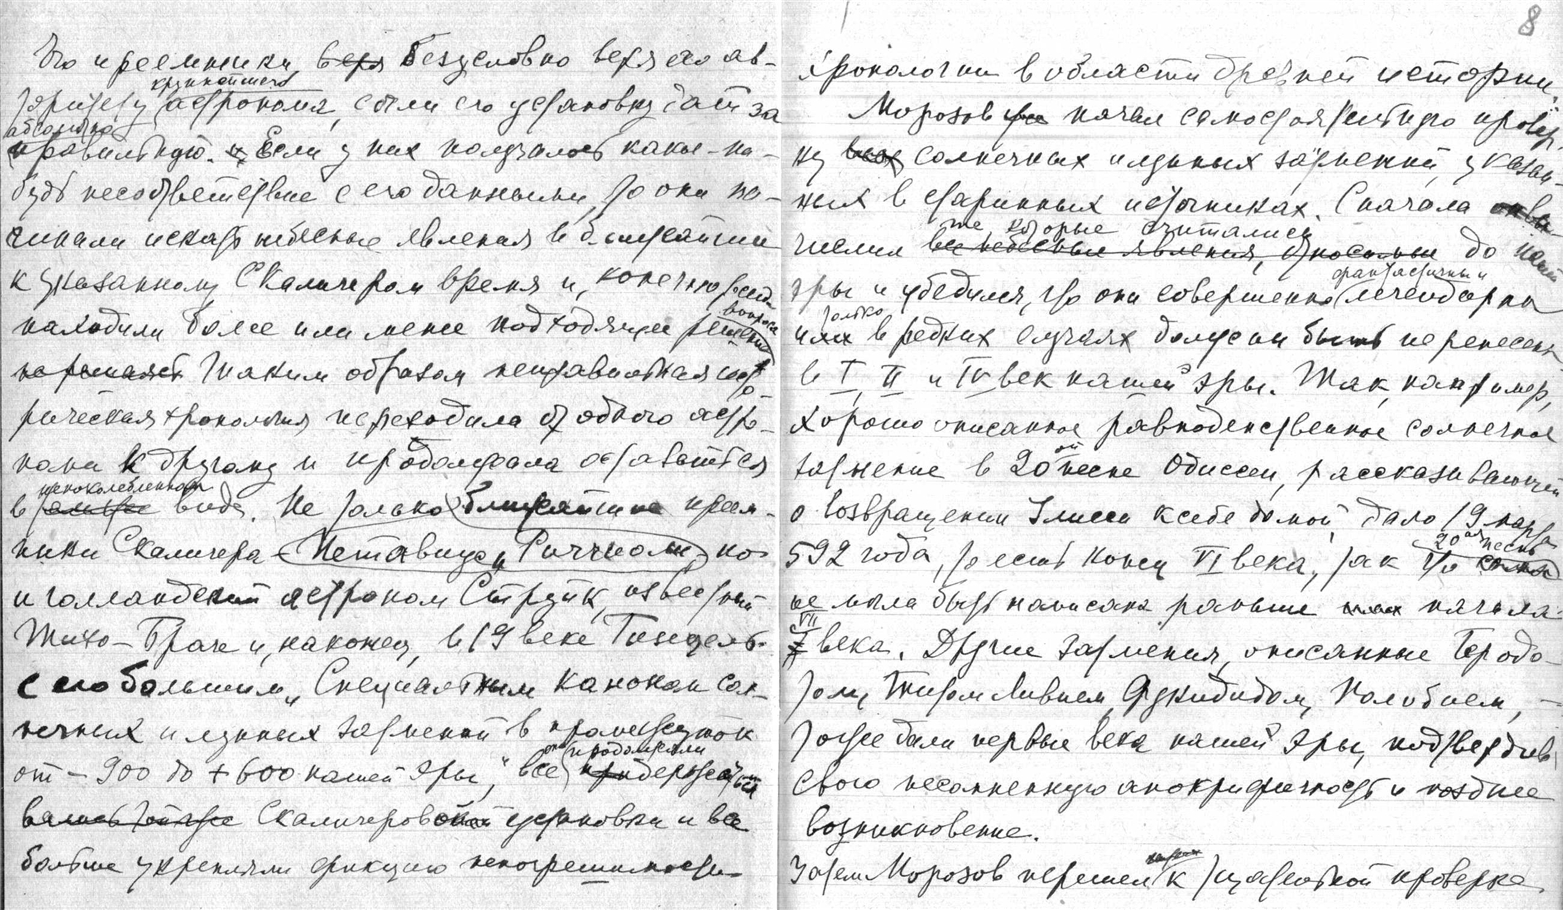 Его преемники, безусловно веря его ав-
торитету крупнейшего астронома, сочли его установку дат за
абсолютно правильную. Если у них получалось какое-ни-
будь несоответствие с его данными, то они на-
чинали искать небесные явления в ближайшем
к указанному Скалигером время и, конечно, всегда
находили более или менее подходящее решение вопроса
Таким образом неправильная исто-
рическая хронология переходила от одного астро-
нома к другому и продолжала оставаться
в непоколебленном виде. Не только ближайшие преем-
ники Скалигера – Петавиус и Риччиоли, но
и голландский астроном Стрüйк, известный
Тихо-Браге и, наконец, в 19 веке Гинцель
с его большим „Специальным каноном сол-
нечных и лунных затмений в промежуток
от – 900 до + 600 нашей эры", все они продолжали
Скалигеровой установки и все
больше укрепляли фикцию непогрешимости
8
хронологии в области древней истории.
Морозов начал самостоятельную провер-
ку солнечных и лунных затмений, указан-
ных в старинных источниках. Сначала вы-
числил те, которые считались до нашей
эры и убедился, что они совершенно фантастичны и легендарны
и только в редких случаях должны быть перенесены
в I, II и IV век нашей эры. Так, например,
хорошо описанное равноденственное солнечное
затмение в 20ой песне Одиссеи, рассказывающей
о возвращении Улисса к себе домой, дало 19 марта
592 года, то есть конец VI века, так что 20ая песнь
не могла быть написана раньше начала
VII века. Другие затмения, описанные Геродо-
том, Титом Ливием, Фукидидом, Полибием, –
тоже дали первые века нашей эры, подтвердив
свою несомненную апокрифичность и позднее
возникновение.
Затем Морозов перешел к тщательной проверке